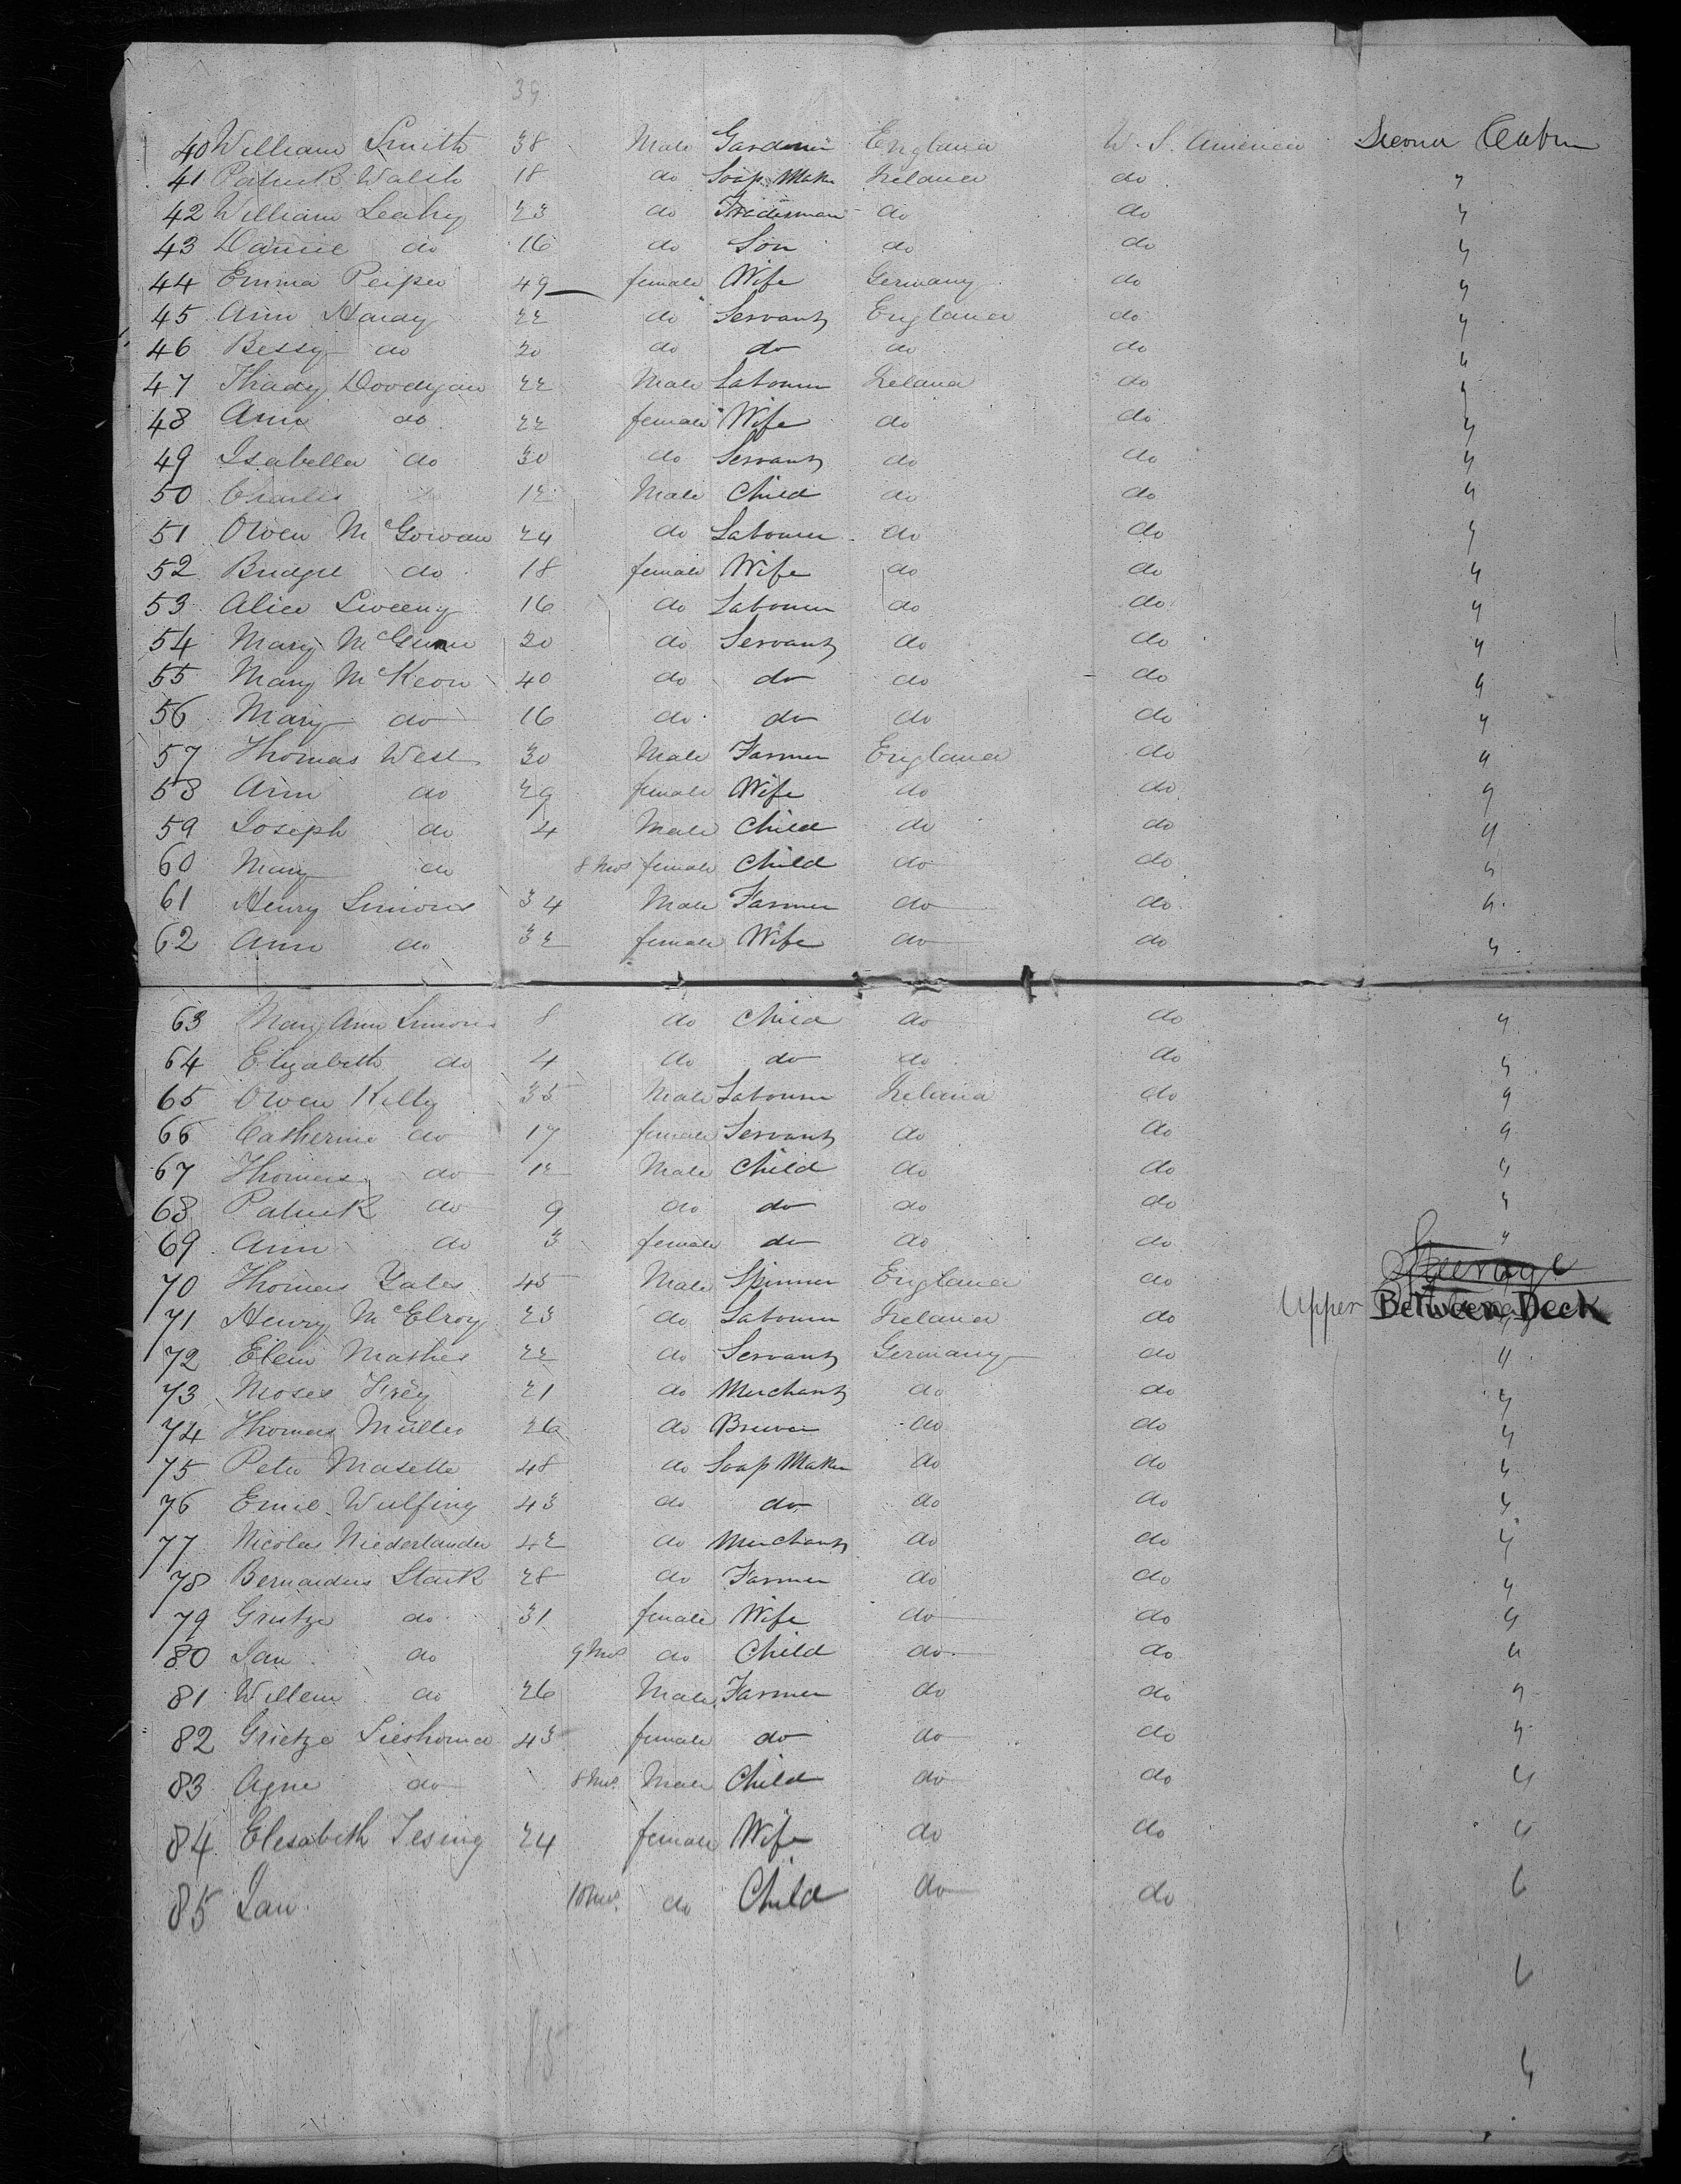 39
40 William Smith 38 Male Gardener England U. S. America Second Cabin
41 Patrick Walsh 18 do Soap Maker Ireland do "
42 William Leahy 23 do Tradesman do do "
43 Daniel do 16 do Son do do "
44 Emma Peiper 49 female Wife Germany do "
45 Ann Hardy 22 do Servant England do "
46 Bessy do 20 do do do do "
47 Thady 22 Male Labourer Ireland do "
48 Ann do 22 female Wife do do "
49 Isabella do 30 do Servant do do "
50 Charles do 12 Male Child do do "
51 Owen McGowan 24 do Labourer do do "
52 Bridget do 18 female Wife do do "
53 Alice Sweeny 16 do Labourer do do "
54 Mary 20 do Servant do do "
55 Mary McKeon 40 do do do do "
56 Mary do 16 do do do do "
57 Thomas West 30 Male Farmer England do "
58 Ann do 29 female Wife do do "
59 Joseph do 4 Male Child do do "
60 Mary do 8 Mos female Child do do "
61 Henry Simons 34 Male Farmer do do "
62 Ann do 32 female Wife do do "
63 Mary Ann Simons 8 do Child do do "
64 Elizabeth do 4 do do do do "
65 Owen Kelly 35 Male Labourer Ireland do "
66 Catherine do 17 female Servant do do "
67 Thomas do 12 Male Child do do "
68 Patrick do 9 do do do do "
69 Ann do 3 female do do do "
70 Thomas Yates 45 Male Spinner England do Steerage
71 Henry McElroy 23 do Labourer Ireland do Upper Between Deck
72 Mathes 22 do Servant Germany do "
73 Moses Frey 21 do Merchant do do "
74 Thomas Müller 26 do Brewer do do "
75 Peter Masette 48 do Soap Maker do do "
76 Emil Wulfing 43 do do do do "
77 Nicolas Niederlander 42 do Merchant do do "
78 Bernardus Stark 28 do Farmer do do "
79 Grietze do 31 female Wife do do "
80 Jan do 9 Mos do Child do do "
81 Willem do 26 Male Farmer do do "
82 Grietze 43 female do do do "
83 Agne do 8 Mos Male Child do do "
84 Elesabeth Tesing 24 female Wife do do "
85 Jan 10 Mos do Child do do "
"
"
85